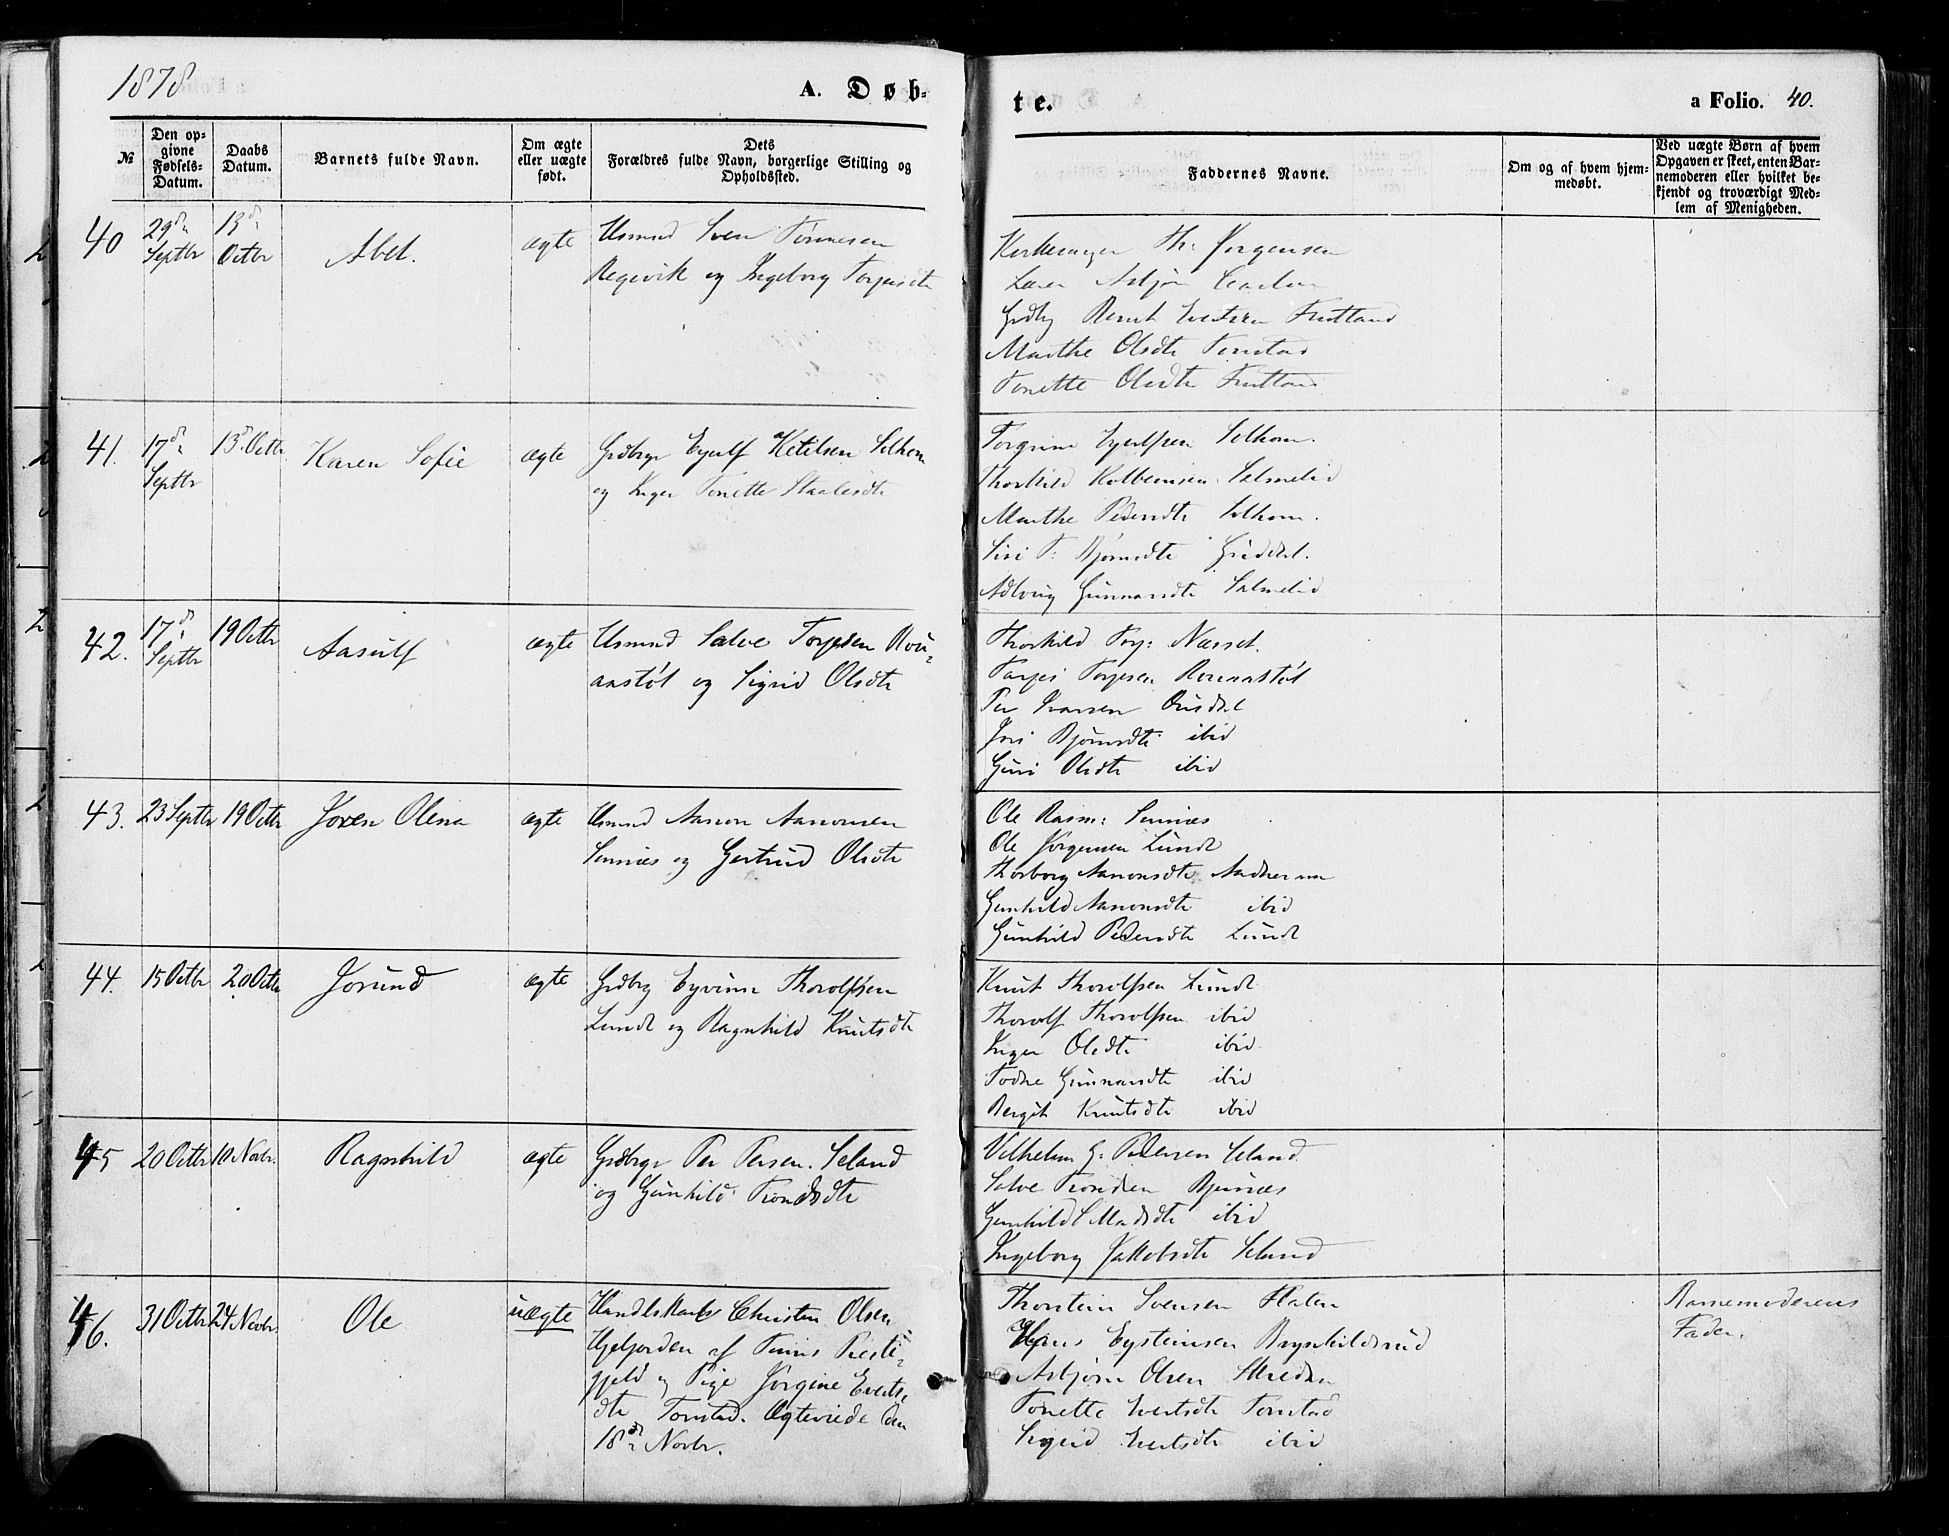 1878
A. Døb-
te.
a Folio. 40.
№
Den op-
givne
Fødsels-
Datum.
Daabs
Datum.
Barnets fulde Navn.
Om ægte
eller uægte
født.
Dets
Forældres fulde Navn, borgerlige Stilling og
Opholdssted.
Faddernes Navne.
Om og af hvem hjem-
medøbt.
Ved uægte Børn af hvem
Opgaven er skeet, enten Bar-
nemoderen eller hvilket be-
kjendt og troværdigt Med-
lem af Menigheden.
40
29de
Septbr
13de
Octbr
Abel.
ægte
Husmd Sven Tønnesen
Regevik og Ingeborg Torjusdtr
Kirkesanger Th: Jørgensen
Lærer Asbjørn
Grdbg Bernt Evertsen
Marthe Olsdtr Tonstad
Tonette Olsdtr
41.
17de
Septbr
13de Octbr
Karen Sofie
ægte
Grdbgr Eyulf Ketilsen Selkom
og Inger Tonette Staalesdtr
Torgrim Eyulfsen Selkom.
Thorkild Kolbeinsen Salmelid
Marthe Pedersdtr Selkom.
Siri T: Bjørnsdtr Gyddal.
Gunnarsdtr Salmelid
42.
17de
Septbr
19 Octbr
Aasulf
ægte
Husmd Salve Torjesen Rou-
anstøl og Sigrid Olsdtr
Thorkild Torj: Nesset.
Tarjei Torjesen Rouanstøl
Per Ivarsen Ousdal
Bjørnsdtr ibid
Guri Olsdtr ibid
43.
23 Septbr
19 Octbr
Joren Olena
ægte
Husmd Aanon Aanonsen
Sinnes og Gertrud Olsdtr
Ole Rasm: Sinnes
Ole Jørgensen Lunde
Thorborg Aanonsdtr
Gunhild Aanonsdtr ibid
Gunhild Pedersdtr Lunde
44.
15 Octbr
20 Octbr
Jorund
ægte
Grdbrg Eyvinn Thorolfsen
Lunde og Ragnhild Knutsdtr
Knut Thorolfsen Lunde
Thorolf Thorolfsen ibid
Inger Olsdtr ibid
Todne Gunnarsdtr ibid
Bergit Knutsdtr ibid
45
20 Octbr
10 Novbr.
Ragnhild
ægte
Grdbgr Per Persen Seland
og Gunhild Trondsdtr
Vilhelm G: Pedersen Seland
Salve Trondsen Bjunes
Gunhild S Madsdtr ibid
Ingeborg Jakobsdtr Seland
46.
31 Octbr
24 Novbr.
Ole
uægte
Handelskarl Christen Olsen
Hjeljorden af Finnø Præste-
gjeld og Pige Jørgine Everts-
dtr Tonstad. Ægteviede den
18de Novbr.
Thorstein Svensen Haten
Hans Eysteinsen Brynhildsrud
Asbjørn Olsen Skreden
Tonette Evertsdtr Tonstad
Sigrid Evertsdtr ibid
Barnemoderens
Fader.